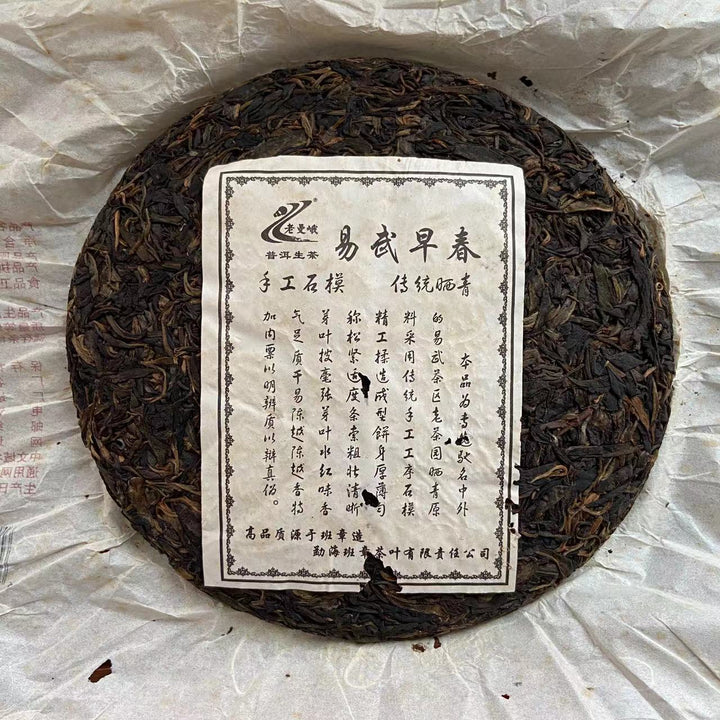 老曼峨®
普洱生茶
易武早春
手工石模 传统晒青
本品为专选驰名中外
的易武茶区老茶园晒青原
料采用传统手工工序石模
精工揉造成型餅身厚薄匀
称松紧适度条索粗壮清晰
芽叶披毫张芽叶水红味香
气足质干易陈越陈越香特
加内票以明辨质以辨真伪。
高品质源于班章造
勐海班章茶叶有限责任公司